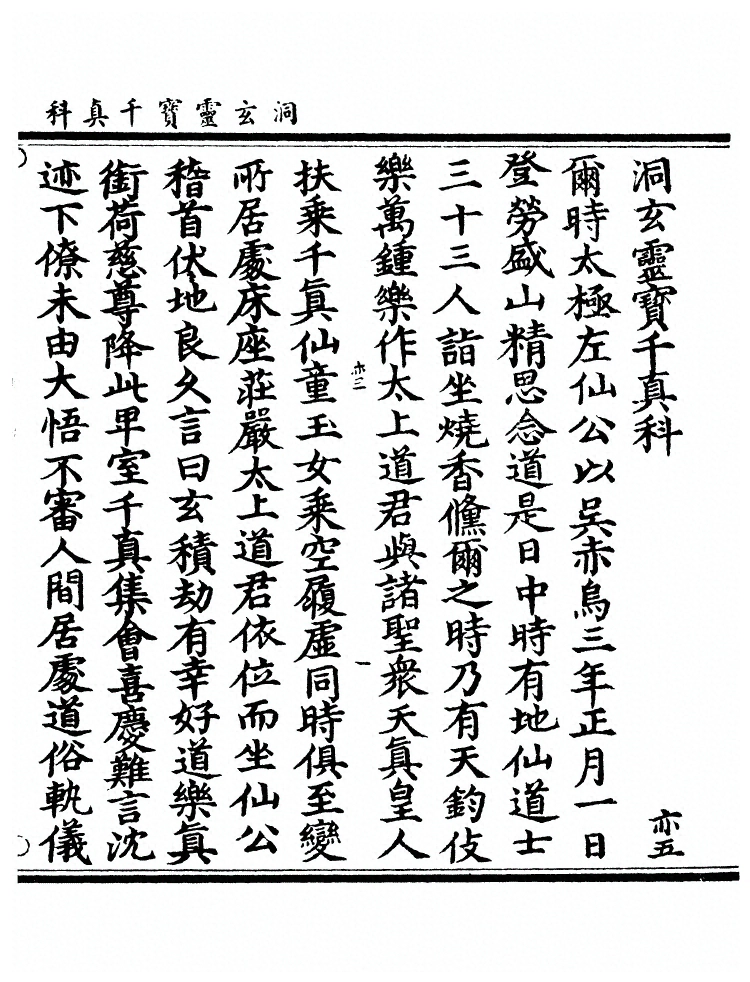 洞玄靈寶千真科
洞玄靈寶千真科
亦五
爾時太極左仙公以吳赤烏三年正月一日
登勞盛山精思念道是日中時有地仙道士
三十三人詣坐燒香儵爾之時乃有天鈞伎
樂萬鍾樂作太上道君與諸聖衆天真皇人
亦三
扶乘千真仙童玉女乘空履虛同時俱至變
所居處床座莊嚴太上道君依位而坐仙公
稽首伏地良久言曰玄積劫有幸好道樂真
銜荷慈尊降此卑室千真集會喜慶難言沈
迹下僚未由大悟不審人間居處道俗軌儀